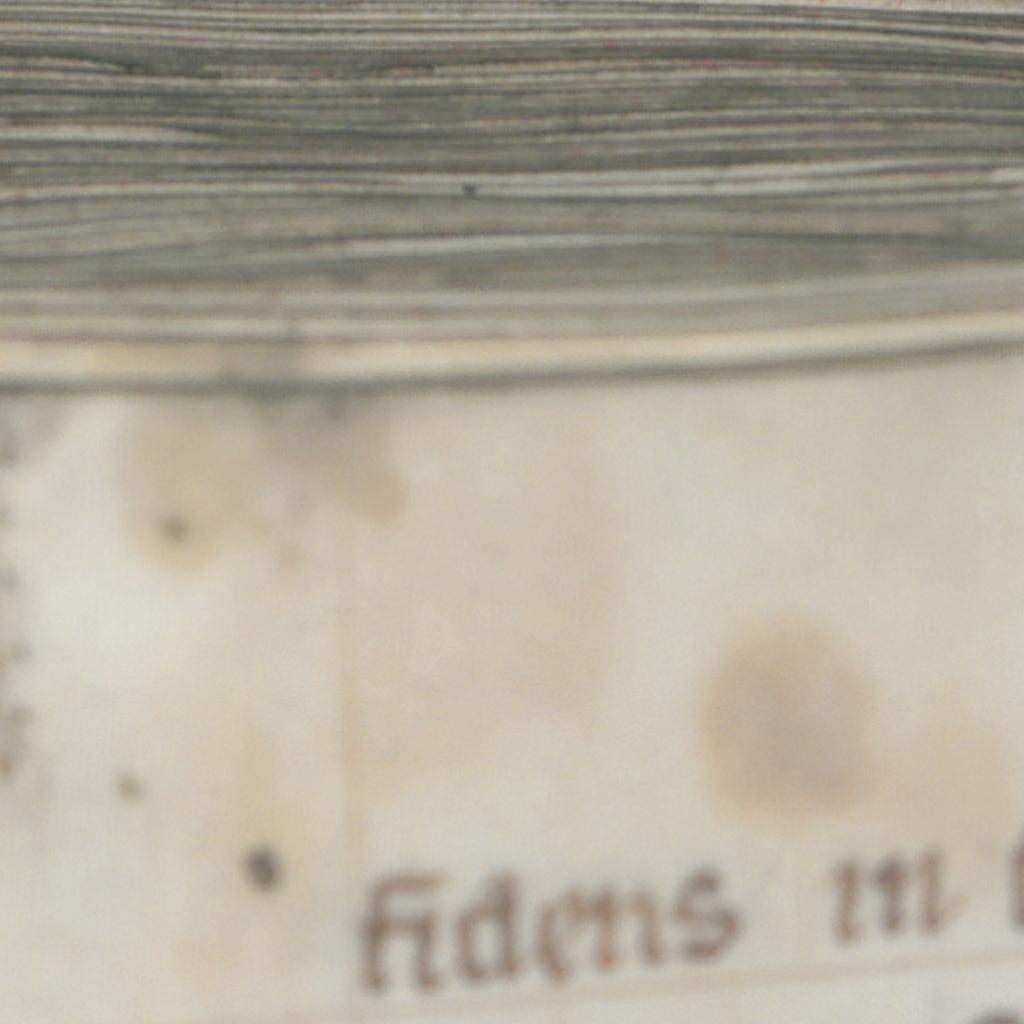 fidens in